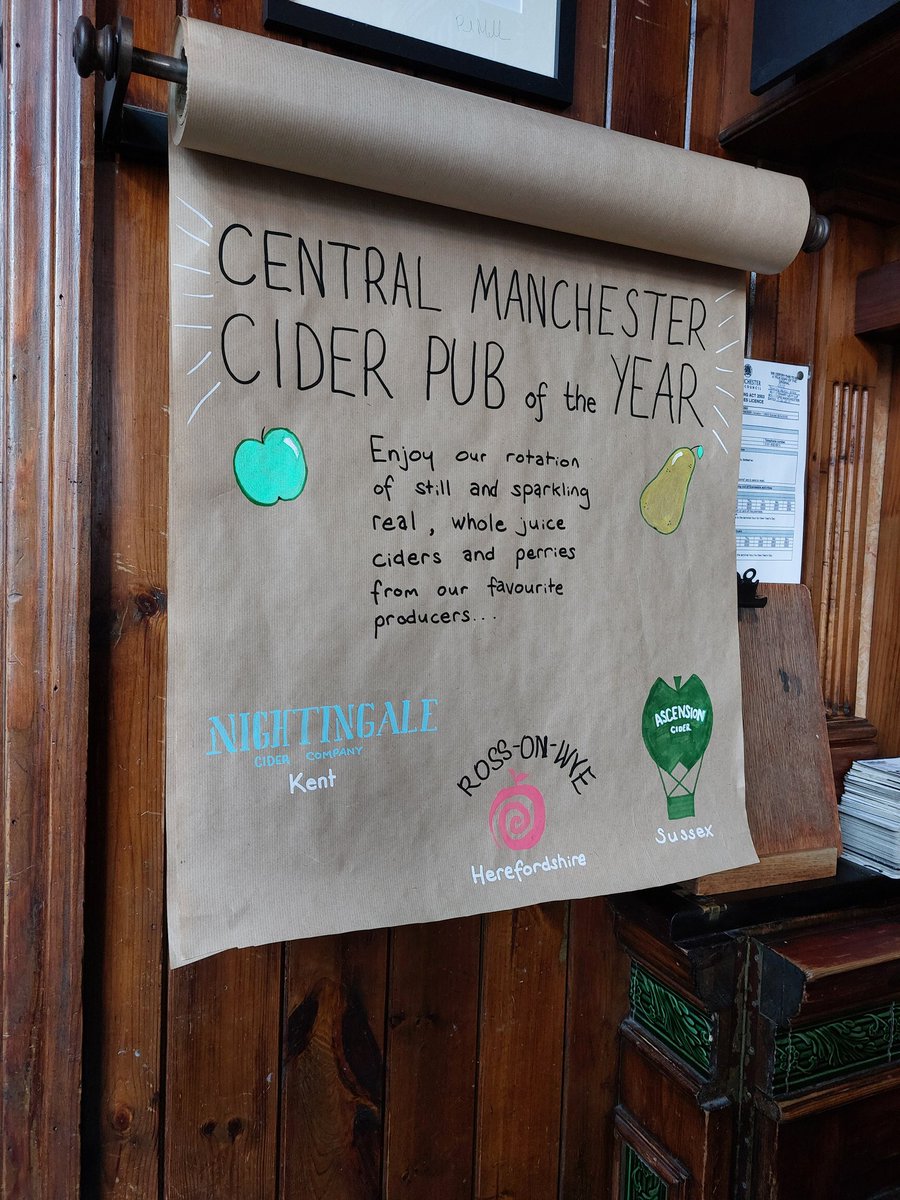 CENTRAL MANCHESTER
CIDER PUB of the YEAR
Enjoy our rotation
of still and sparkling
real, whole juice
ciders and perries
from our favourite
producers...
NIGHTINGALE
CIDER COMPANY
Kent
ROSS-ON-WYE
Herefordshire
ASCENSION
CIDER
Sussex